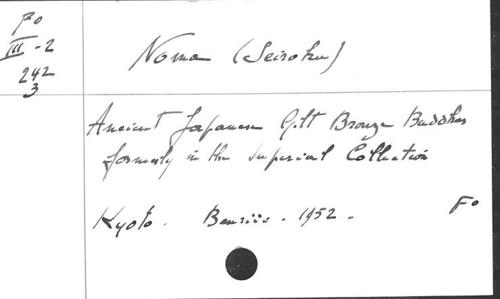 Fo
III - 2
242
3
Noma (Seiroku)
Ancient Japanese Gilt Bronze Buddhas
formerly in the Imperial Collection
Kyoto. Benrido. 1952.
Fo